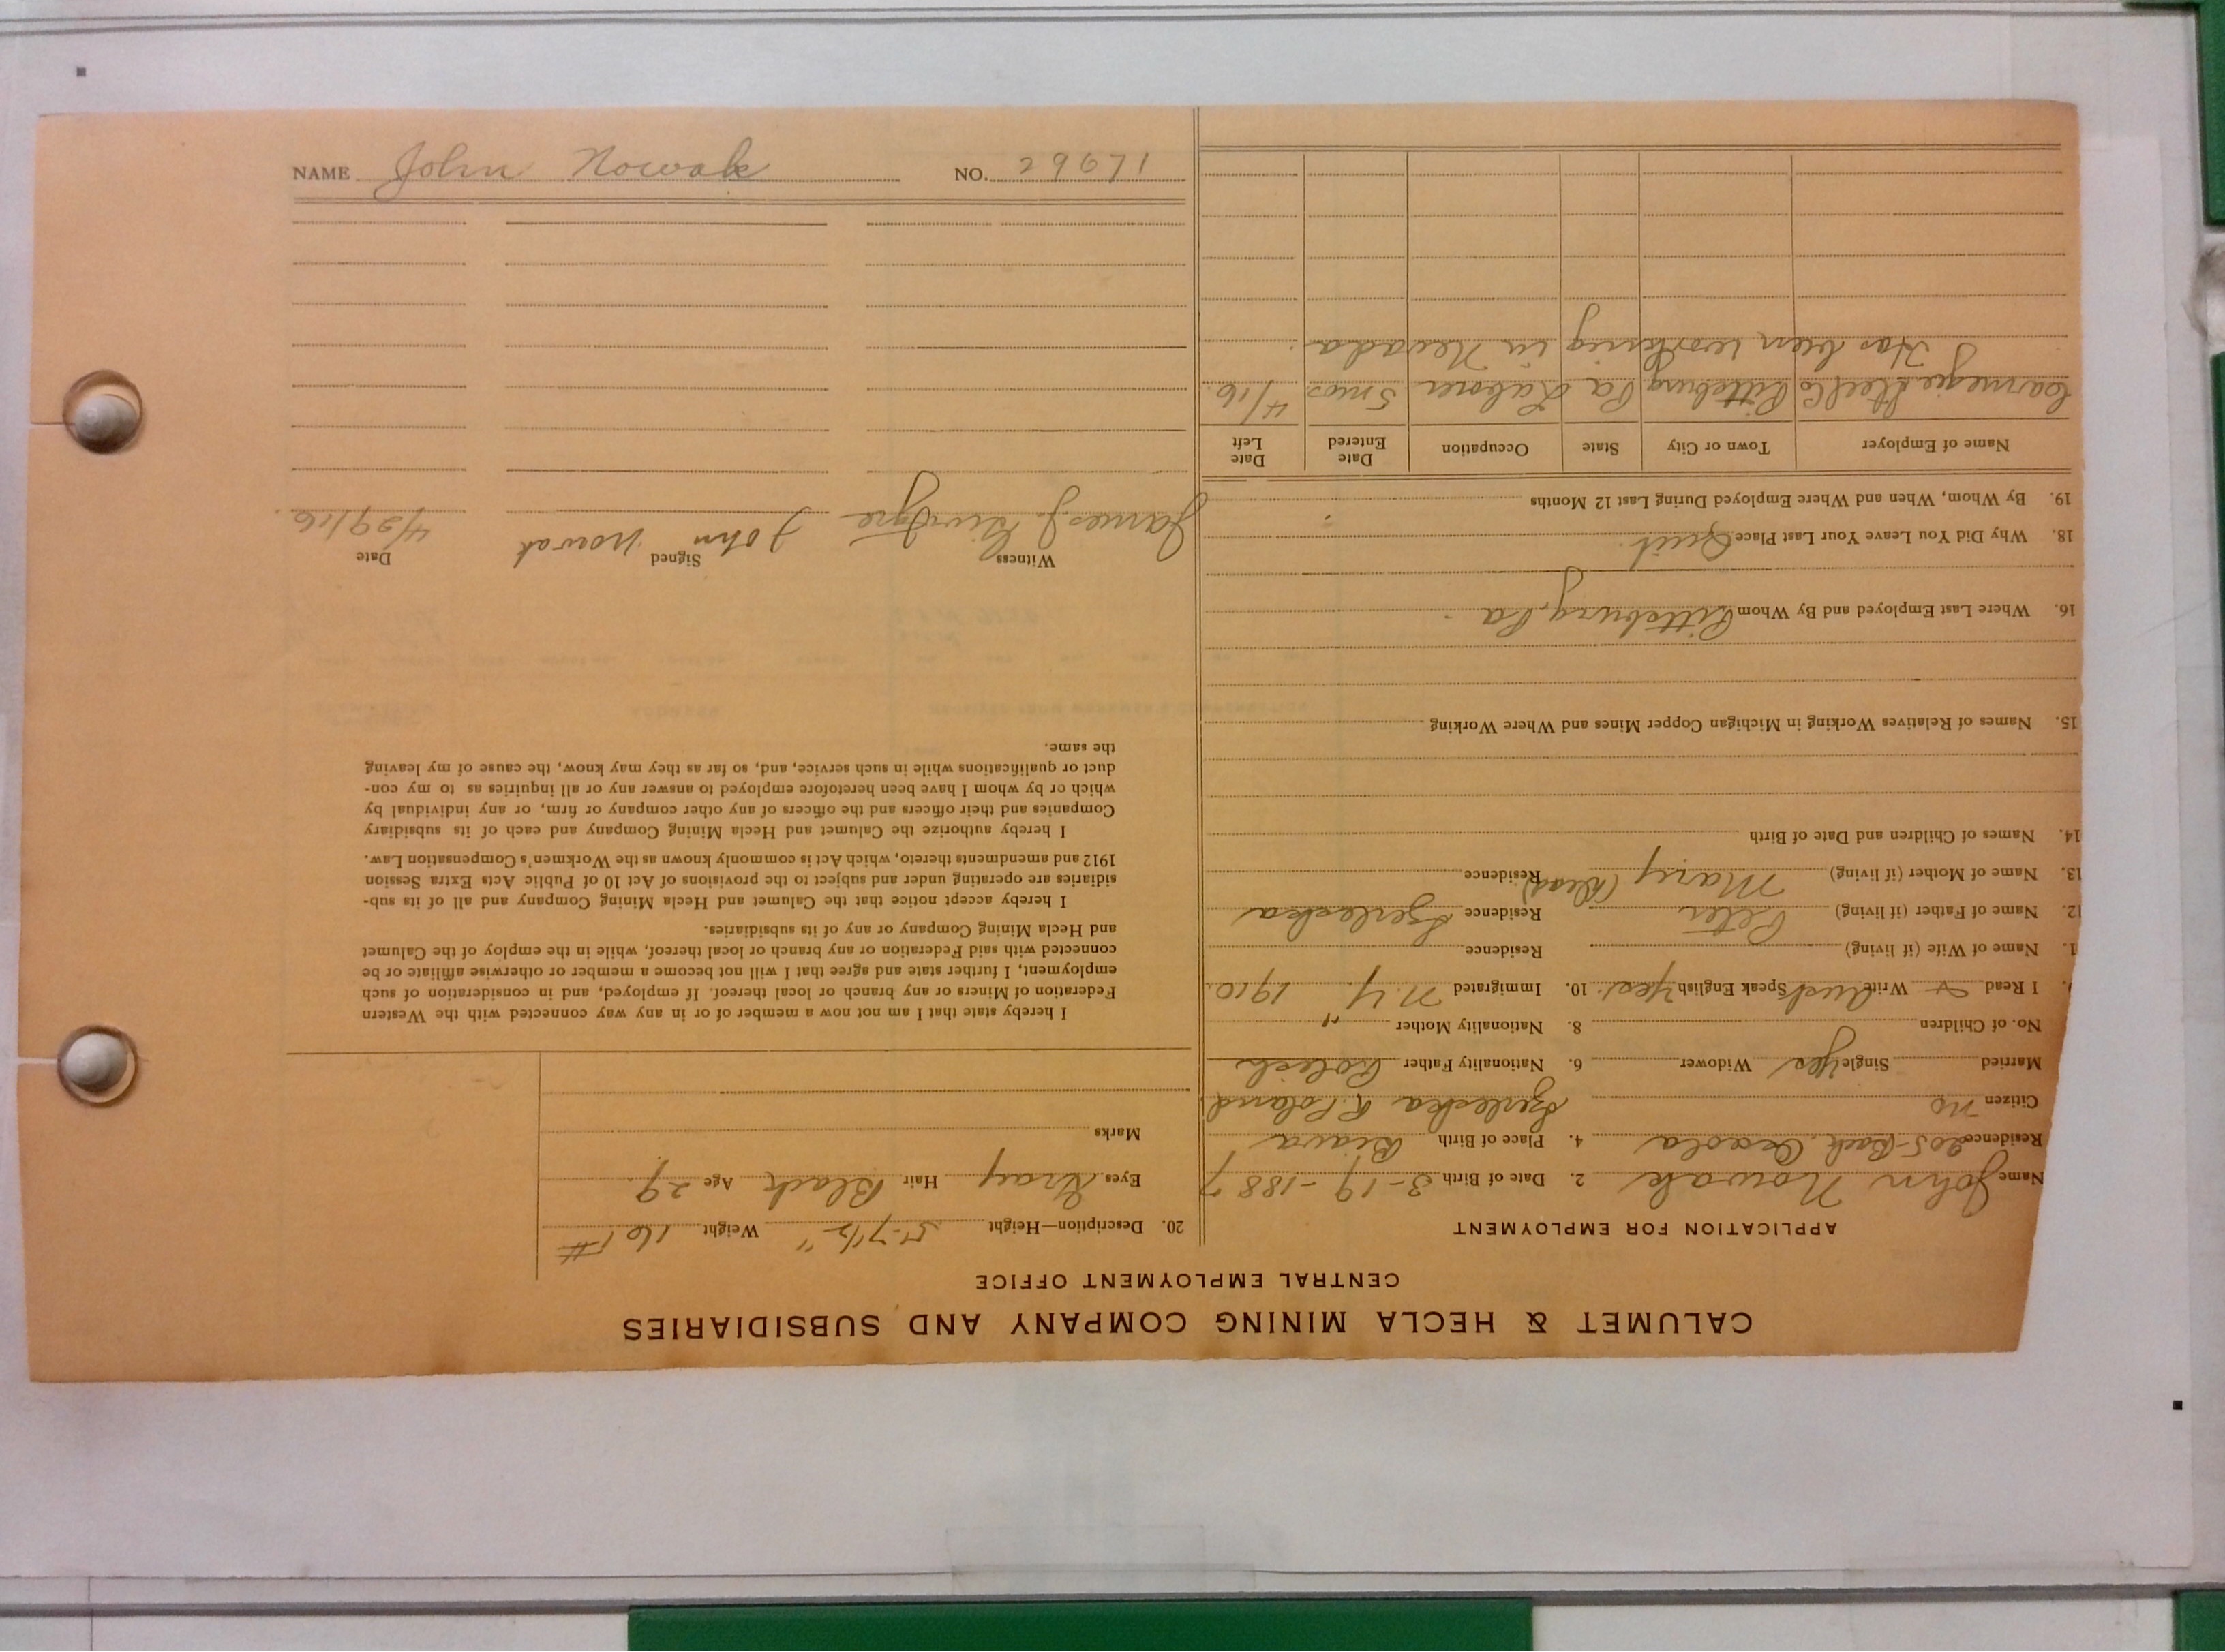 CALUMET & HECLA MINING COMPANY AND SUBSIDIARIES
CENTRAL EMPLOYMENT OFFICE
APPLICATION FOR EMPLOYMENT
Name John Nowak 2. Date of Birth 3-19-1887
Residence 205 Osceola 4. Place of Birth
Citizen no R. Poland
Married Single Yes Widower 6. Nationality Father Polish
No. of Children 8. Nationality Mother "
I Read Write Speak English Yes. 10. Immigrated N.Y. 1910
1. Name of Wife (if living) Residence
12. Name of Father (if living) Peter Residence
13. Name of Mother (if living) Mary (Dead) Residence
14. Names of Children and Date of Birth
15. Names of Relatives Working in Michigan Copper Mines and Where Working
16. Where Last Employed and By Whom Pittsburg, Pa
18. Why Did You Leave Your Last Place Quit
19. By Whom, When and Where Employed During Last 12 Months
Name of Employer Town or City State Occupation Date Entered Date Left
Carnegie Steel Co Pittsburg Pa Laborer 5 mos 4/16
Has been working in Nevada
20. Description—Height 5-7 1/2" Weight 161#
Eyes Gray Hair Black Age 29
Marks
I hereby state that I am not now a member of or in any way connected with the Western
Federation of Miners or any branch or local thereof. If employed, and in consideration of such
employment, I further state and agree that I will not become a member or otherwise affiliate or be
connected with said Federation or any branch or local thereof, while in the employ of the Calumet
and Hecla Mining Company or any of its subsidiaries.
I hereby accept notice that the Calumet and Hecla Mining Company and all of its sub-
sidiaries are operating under and subject to the provisions of Act 10 of Public Acts Extra Session
1912 and amendments thereto, which Act is commonly known as the Workmen's Compensation Law.
I hereby authorize the Calumet and Hecla Mining Company and each of its subsidiary
Companies and their officers and the officers of any other company or firm, or any individual by
which or by whom I have been heretofore employed to answer any or all inquiries as to my con-
duct or qualifications while in such service, and, so far as they may know, the cause of my leaving
the same.
Witness Signed Date
James J. John Nowak 4/29/16.
NAME John Nowak NO. 29671